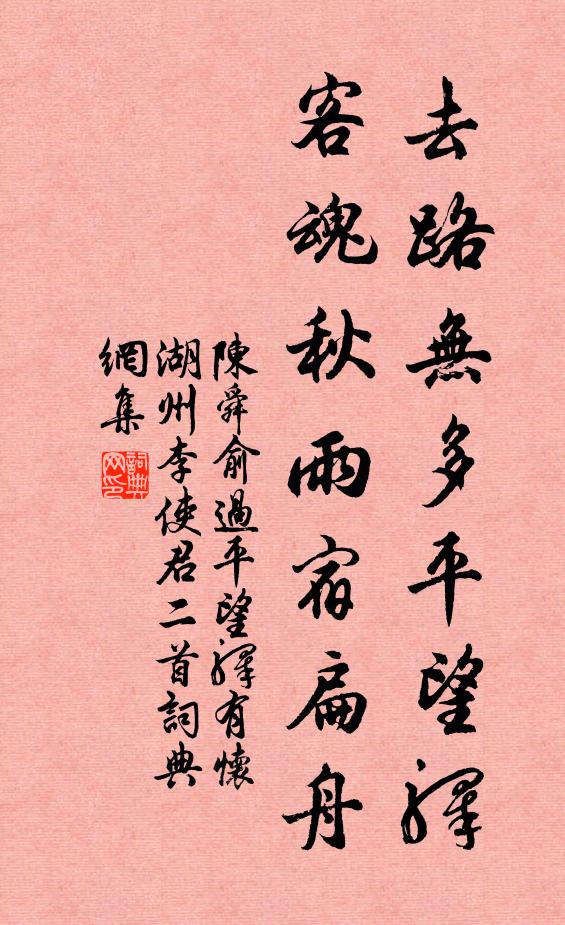 去路無多平望驛
客魂秋雨宿扁舟
陳舜俞過平望驛有懷
湖州李使君二首詞典
網集
詞典
网印